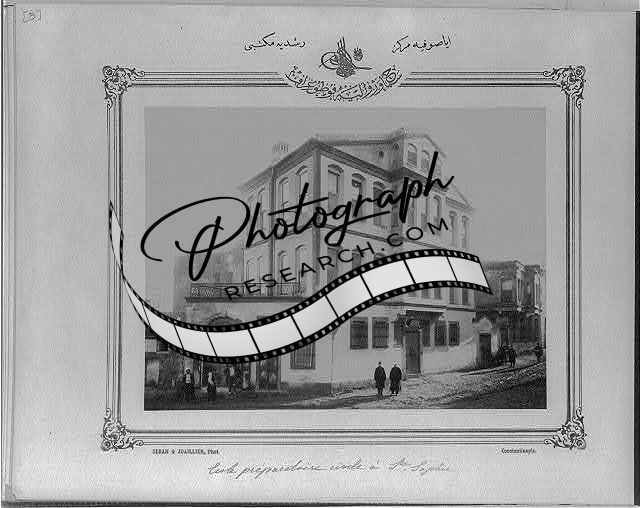 [3]
اياصوفيه مركز رشديه مكتبى
Photograph
RESEARCH.COM
SEBAH & JOAILLIER, Phot. Constantinople.
Ecole préparatoire civile à Ste. Sophie